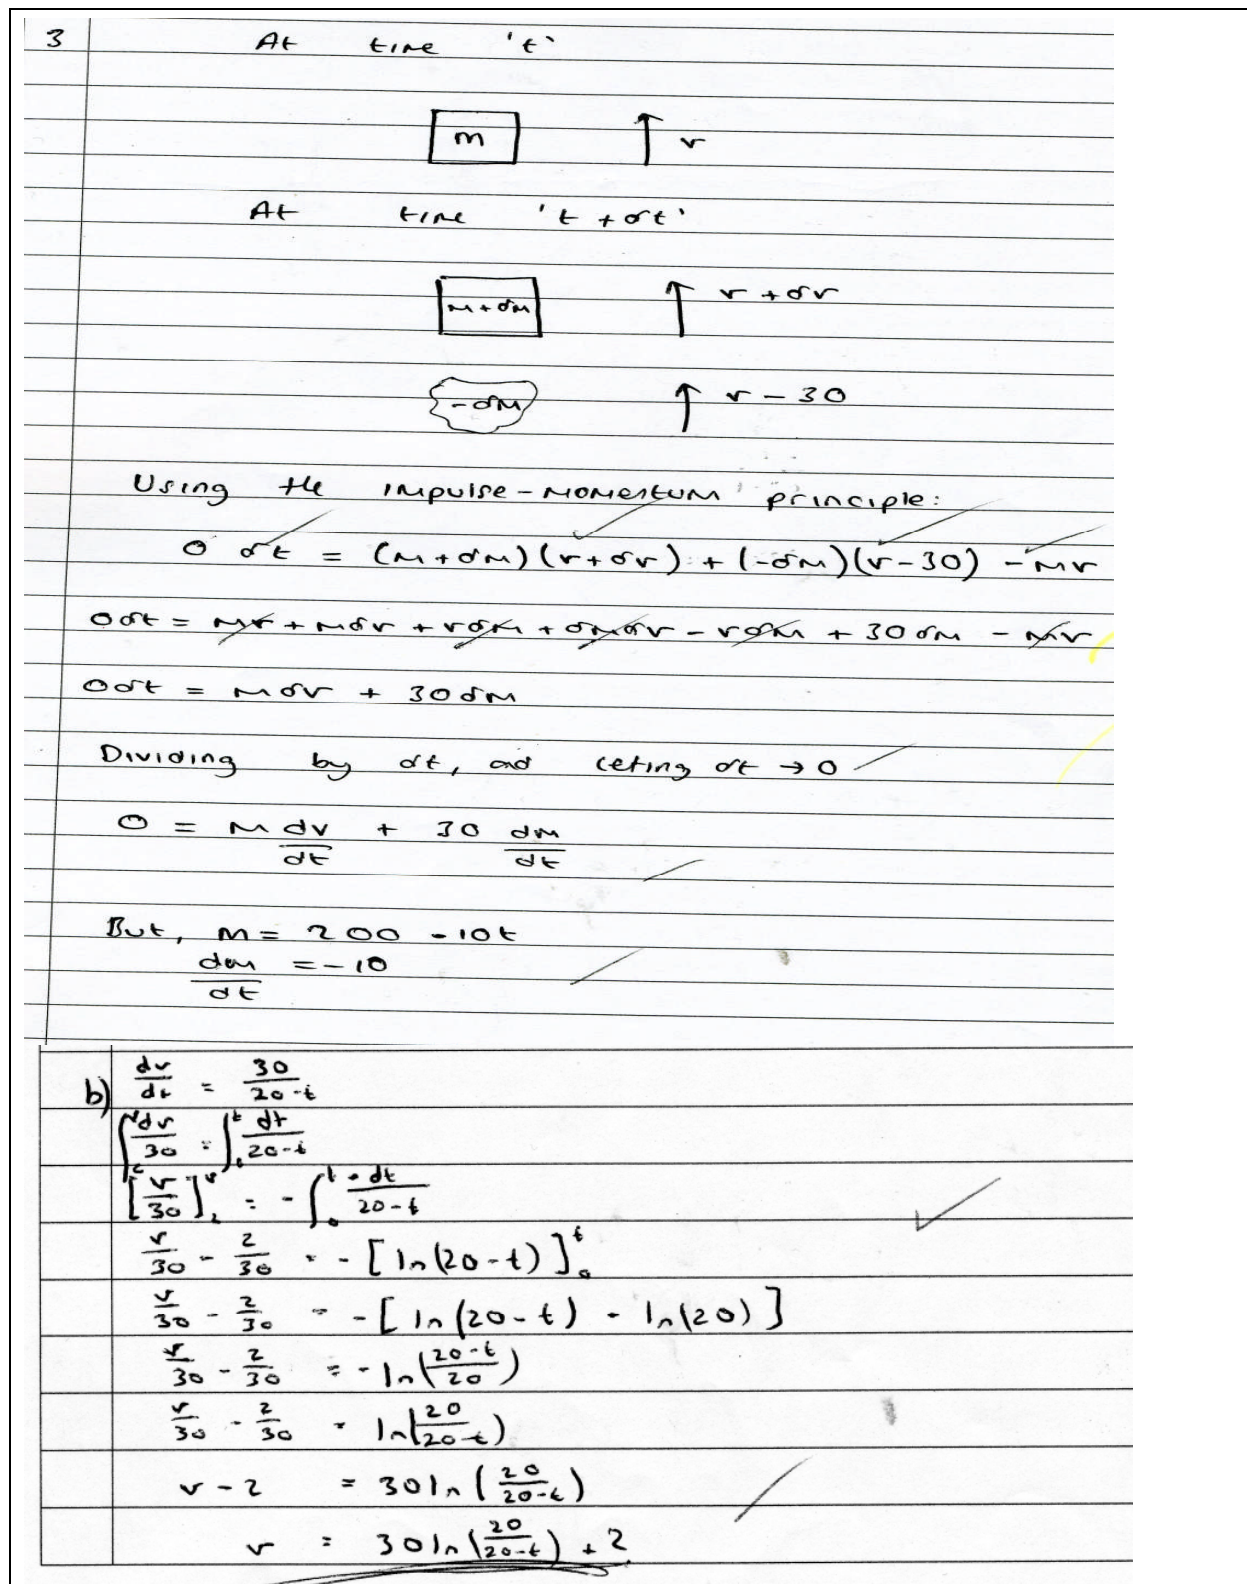 3 At time 't'
m v
At time 't + δt'
m + δm v + δv
-δm v - 30
Using the impulse-momentum principle:
0 δt = (m+δm)(v+δv) + (-δm)(v-30) - mv
0δt = mv + mδv + vδm + δmδv - vδm + 30δm - mv
0δt = mδv + 30δm
Dividing by δt, and leting δt → 0
0 = m dv/dt + 30 dm/dt
But, m = 200 - 10t
dm/dt = -10
b) dv/dt = 30/20-t
∫₂ᵛ dv/30 = ∫₀ᵗ dt/20-t
[v/30]₂ᵛ = -∫₀ᵗ -dt/20-t
v/30 - 2/30 = -[ln(20-t)]₀ᵗ
v/30 - 2/30 = -[ln(20-t) - ln(20)]
v/30 - 2/30 = -ln(20-t/20)
v/30 - 2/30 = ln(20/20-t)
v - 2 = 30ln(20/20-t)
v = 30ln(20/20-t) + 2